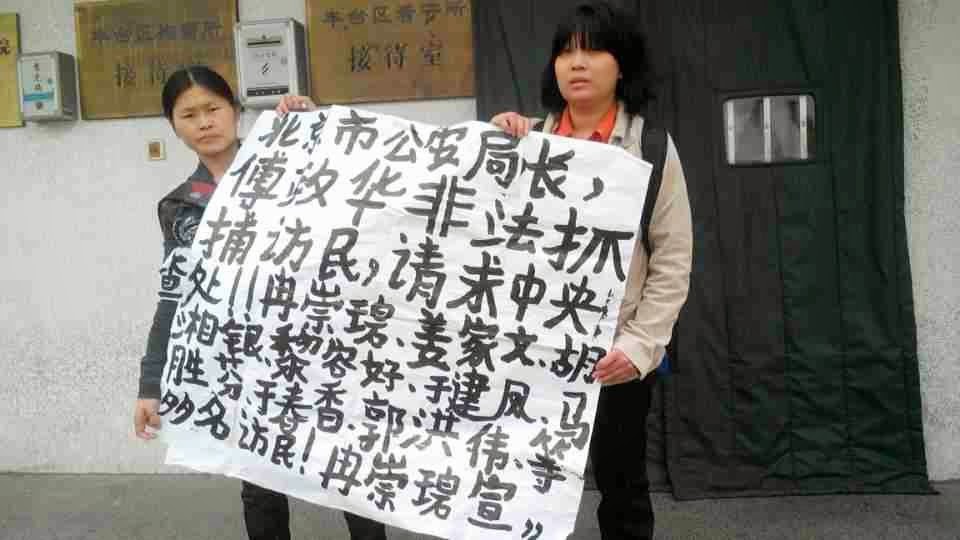 丰台区拘留所
接待室
丰台区看守所
接待室
院
北京市公安局长，
傅政华非法抓
捕访民，请求中央
查处!!冉崇碧、姜家文、胡
相银、黎容好、于建风、马
胜芬、春香、郭洪伟、等
多名访民！冉崇碧宣”